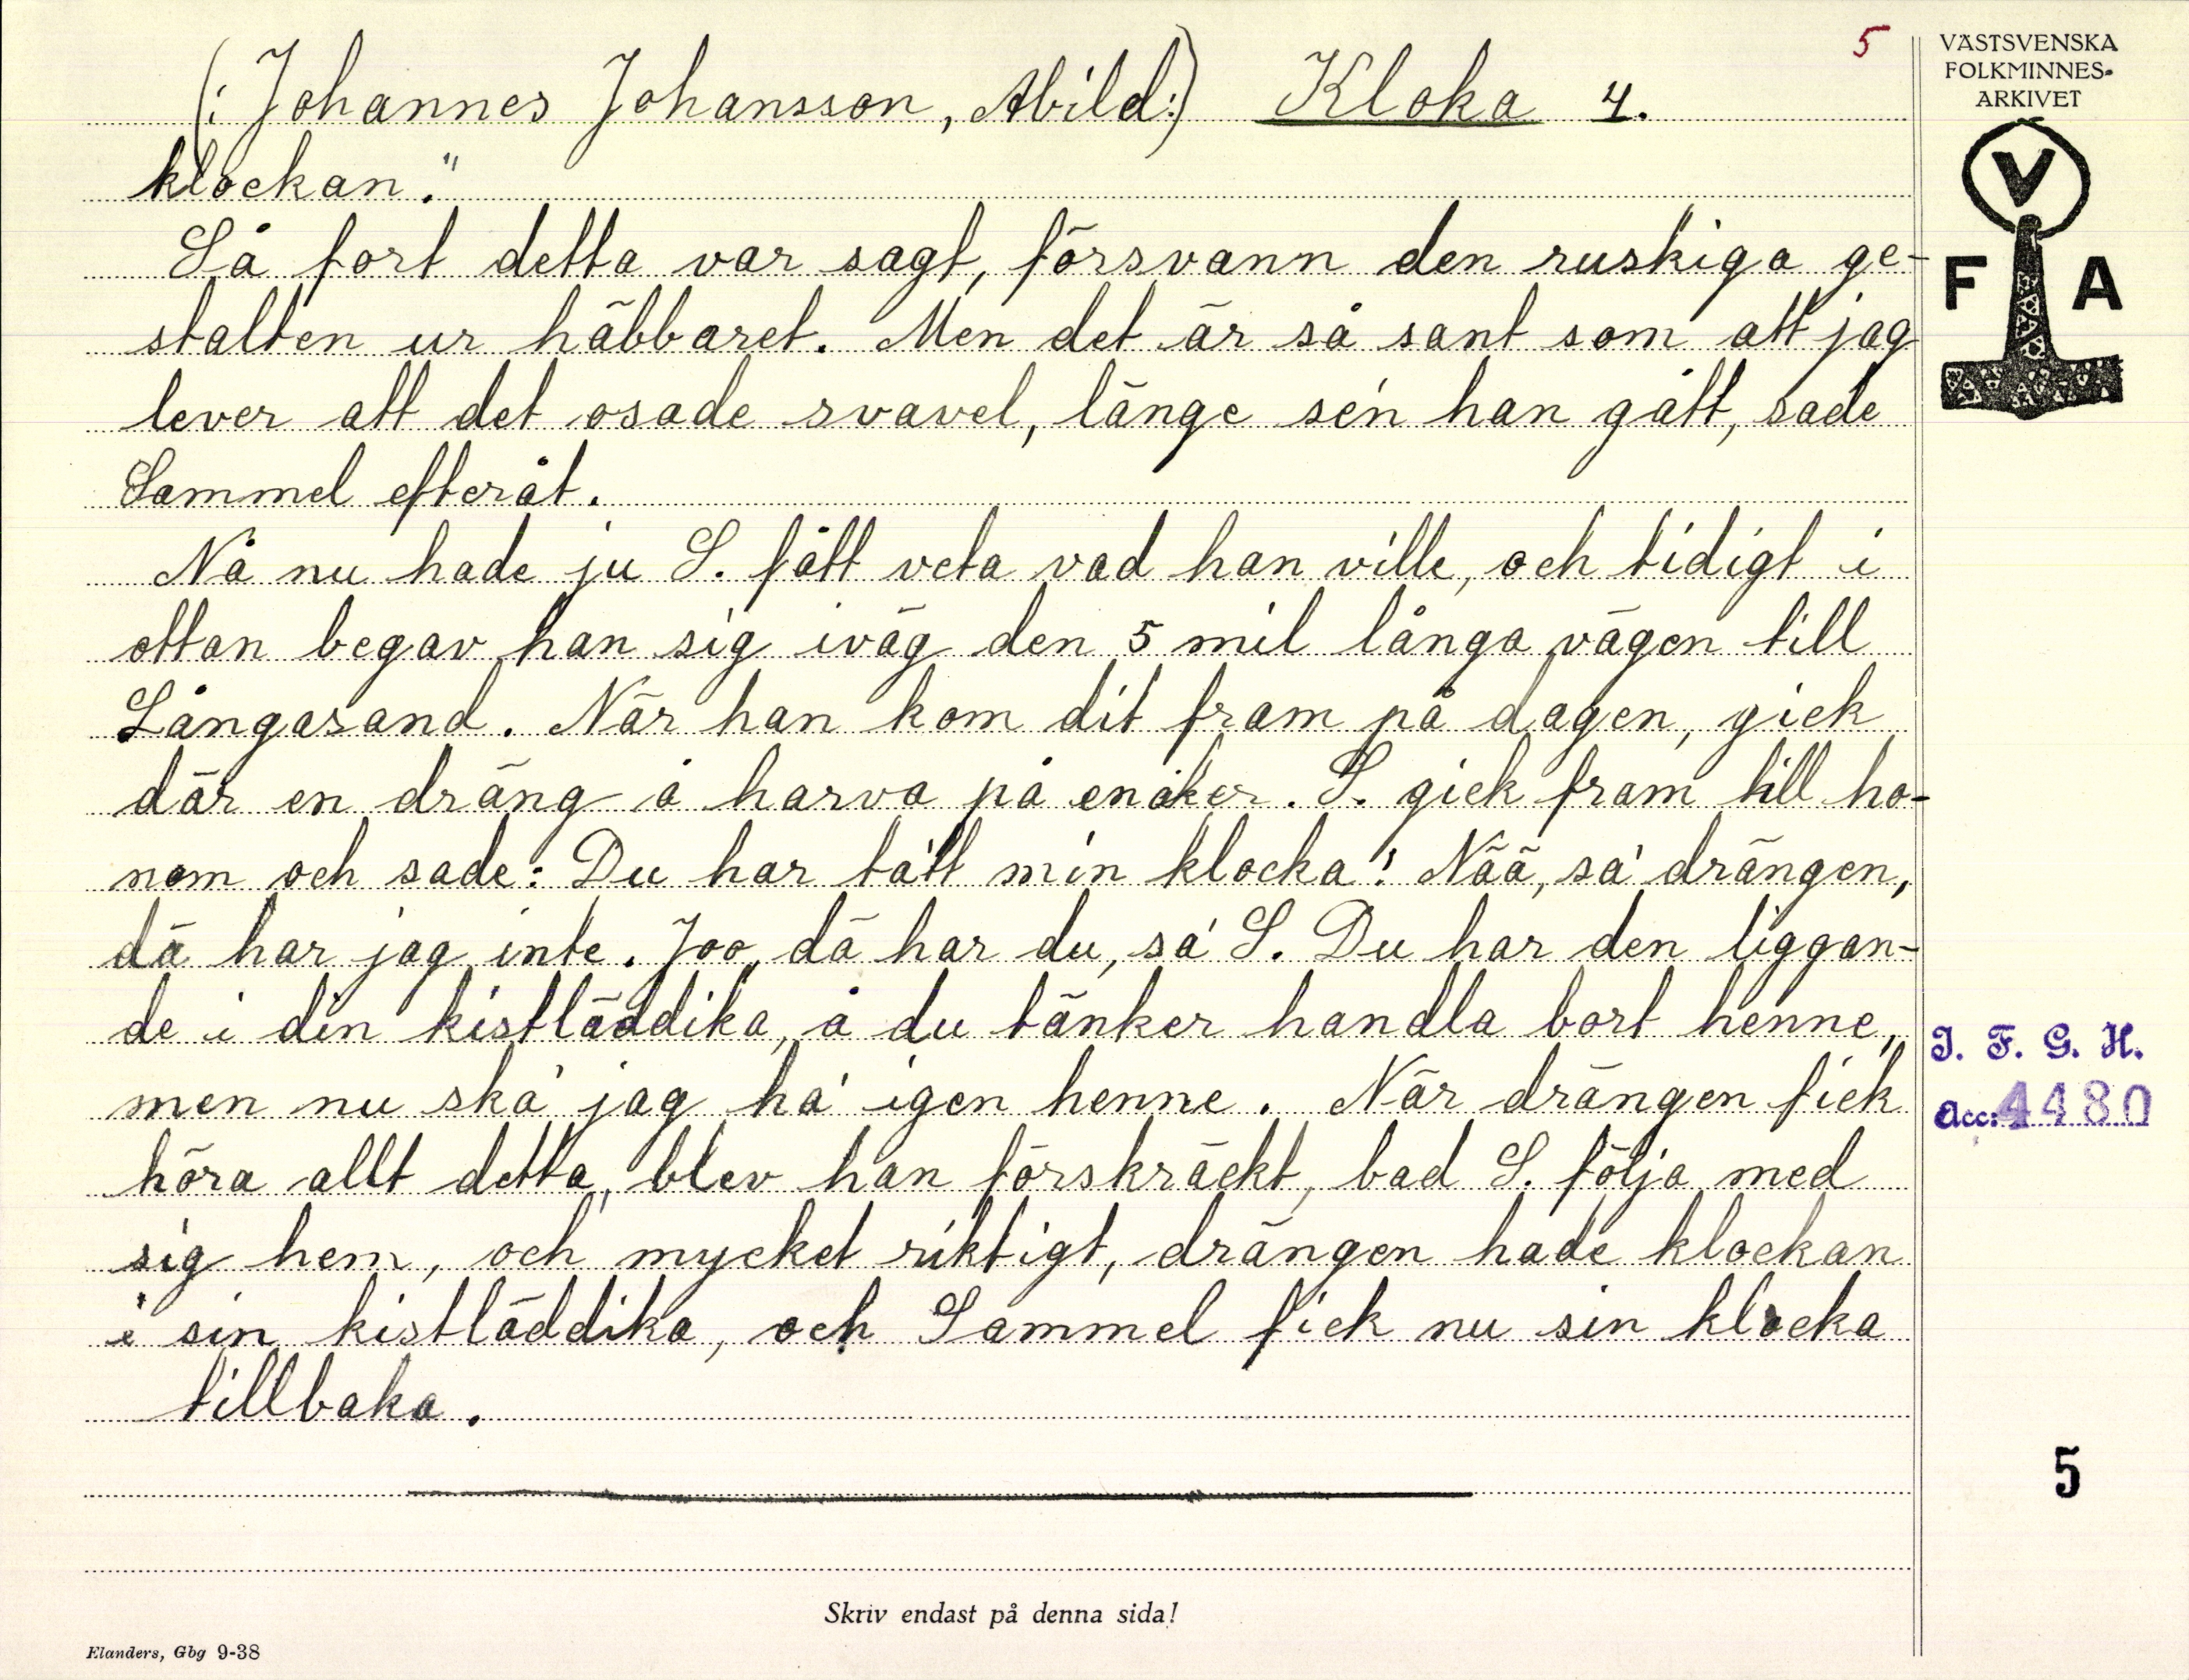 5
VÄSTSVENSKA
FOLKMINNES-
ARKIVET
(: Johannes Johansson, Abild:) Kloka 4.
klockan."
Så fort detta var sagt, försvann den ruskiga ge-
stalten ur häbbaret. Men det är så sant som att jag
lever att det osade svavel, länge se'n han gått, sade
Sammel efteråt.
Nå nu hade ju S. fått veta vad han ville, och tidigt i
ottan begav han sig iväg den 5 mil långa vägen till
Långasand. När han kom dit fram på dagen, gick
där en dräng å harva på en åker. S. gick fram till ho-
nom och sade: Du har ta'tt min klocka! Nää, sa' drängen,
dä har jag inte. Joo, dä har du, sa' S. Du har den liggan-
de i din kistläddika, å du tänker handla bort henne,
men nu ska' jag ha' igen henne. När drängen fick
höra allt detta, blev han förskräckt, bad S. följa med
sig hem, och mycket riktigt, drängen hade klockan
i sin kistläddika, och Sammel fick nu sin klocka
tillbaka.
V
F A
I. F. G. H.
Acc: 4480
5
Skriv endast på denna sida!
Elanders, Gbg 9-38